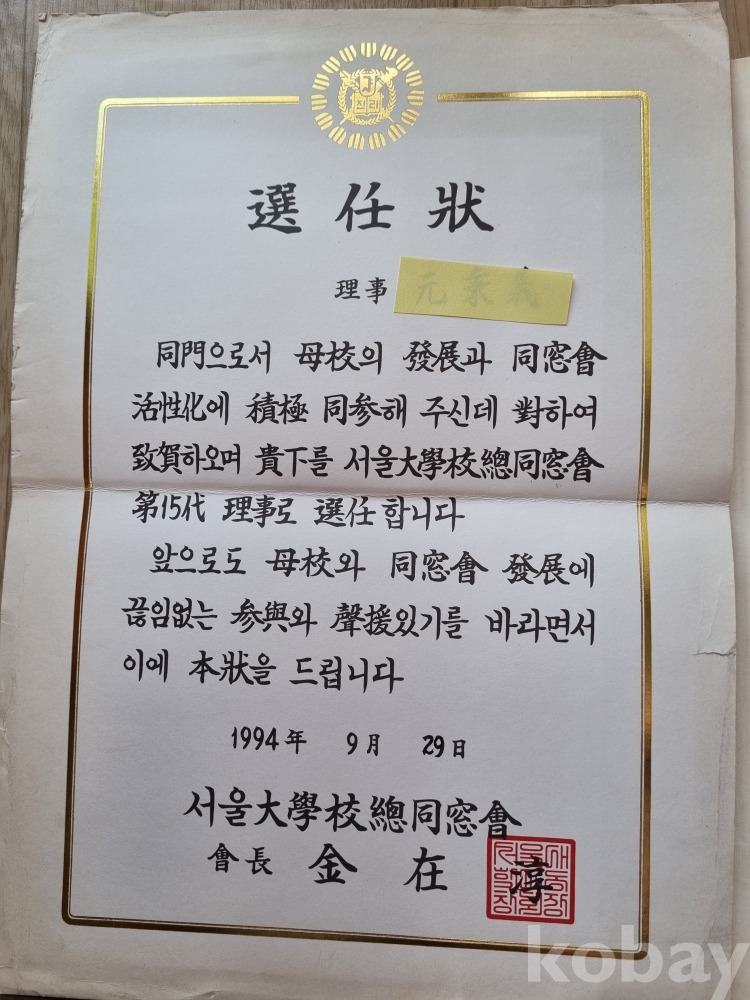 選任狀
理事
同門으로서 母校의 發展과 同窓會
活性化에 積極 同參해 주신데 對하여
致賀하오며 貴下를 서울大學校總同窓會
第15代 理事로 選任합니다
앞으로도 母校와 同窓會 發展에
끊임없는 參與와 聲援있기를 바라면서
이에 本狀을 드립니다
1994年 9月 29日
서울大學校總同窓會
會長 金在淳
kobay